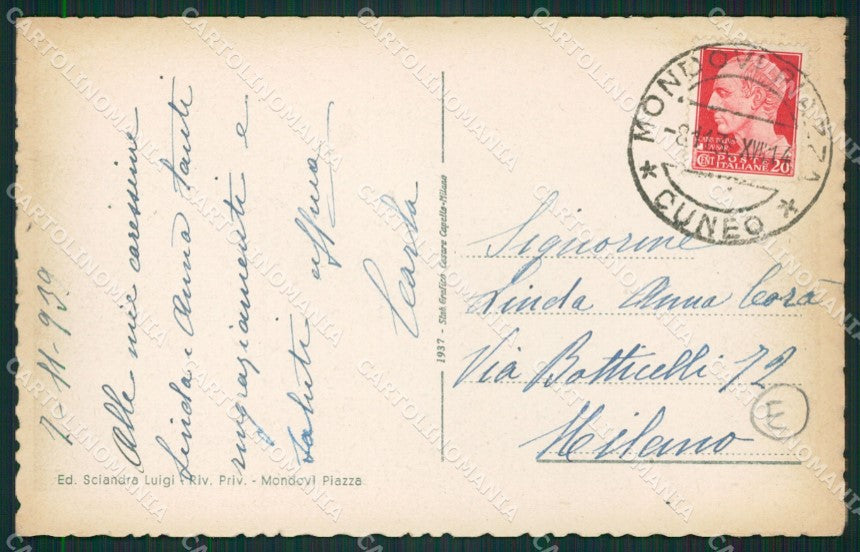 7-11-939
Alle mie carissime
Linda e Anna tanti
ringraziamenti e
saluti aff.ma
Carla
Ed. Sciandra Luigi - Riv. Priv. - Mondovì Piazza
1937 - Stab. Grafico Cesare Capello-Milano
MONDOVI PIAZZA
CUNEO
POSTE
ITALIANE
CENT 20
Signorine
Linda Anna Corà
Via Botticelli 72
Milano
E
CARTOLINOMANIA